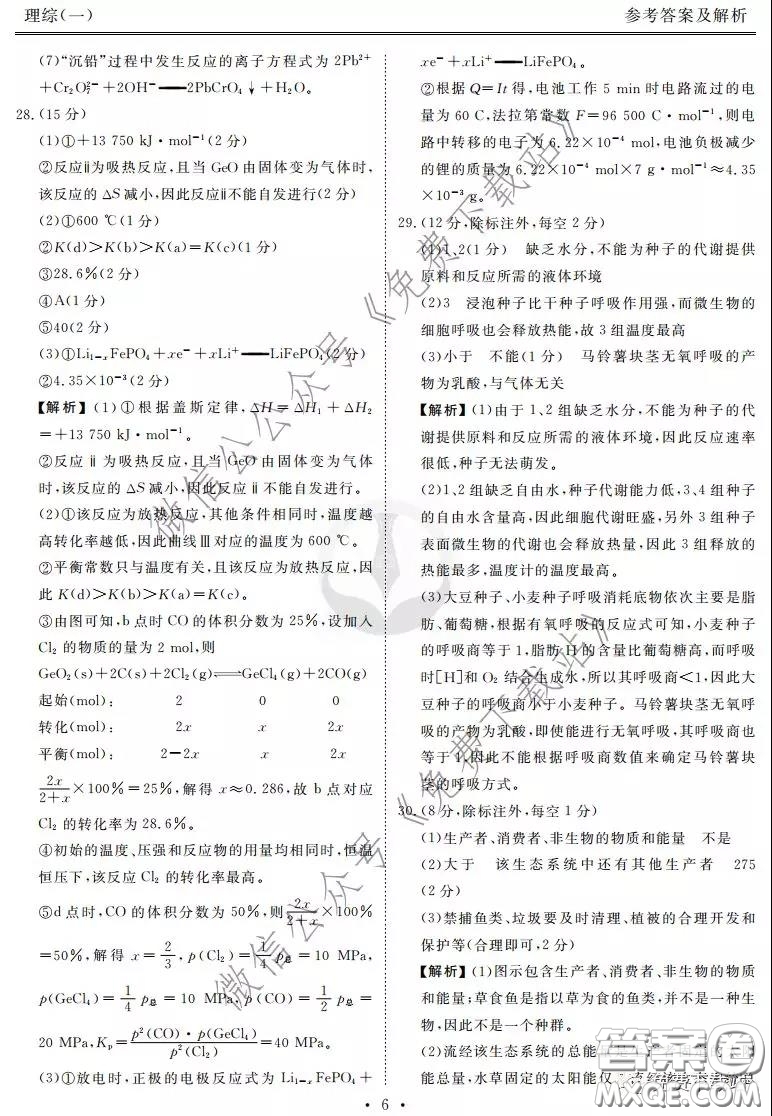 理综(一)
参考答案及解析
(7)“沉铅”过程中发生反应的离子方程式为 2Pb²⁺
+Cr₂O₇²⁻+2OH⁻══2PbCrO₄↓+H₂O。
28.(15 分)
(1)①+13 750 kJ·mol⁻¹(2 分)
②反应ⅱ为吸热反应,且当 GeO 由固体变为气体时,
该反应的 ΔS 减小,因此反应ⅱ不能自发进行(2 分)
(2)①600 ℃(1 分)
②K(d)>K(b)>K(a)=K(c)(1 分)
③28.6%(2 分)
④A(1 分)
⑤40(2 分)
(3)①Li₁₋ₓFePO₄+xe⁻+xLi⁺══LiFePO₄(2 分)
②4.35×10⁻³(2 分)
【解析】(1)①根据盖斯定律,ΔH=ΔH₁+ΔH₂
=+13 750 kJ·mol⁻¹。
②反应ⅱ为吸热反应,且当 GeO 由固体变为气体
时,该反应的 ΔS 减小,因此反应ⅱ不能自发进行。
(2)①该反应为放热反应,其他条件相同时,温度越
高转化率越低,因此曲线Ⅲ对应的温度为 600 ℃。
②平衡常数只与温度有关,且该反应为放热反应,因
此 K(d)>K(b)>K(a)=K(c)。
③由图可知,b 点时 CO 的体积分数为 25%,设加入
Cl₂ 的物质的量为 2 mol,则
GeO₂(s)+2C(s)+2Cl₂(g)⇌GeCl₄(g)+2CO(g)
起始(mol): 2 0 0
转化(mol): 2x x 2x
平衡(mol): 2−2x x 2x
2x/(2+x)×100%=25%,解得 x≈0.286,故 b 点对应
Cl₂ 的转化率为 28.6%。
④初始的温度、压强和反应物的用量均相同时,恒温
恒压下,该反应 Cl₂ 的转化率最高。
⑤d 点时,CO 的体积分数为 50%,则 2x/(2+x)×100%
=50%,解得 x=2/3,p(Cl₂)=1/4 p总=10 MPa,
p(GeCl₄)=1/4 p总=10 MPa,p(CO)=1/2 p总=
20 MPa,Kₚ=p²(CO)·p(GeCl₄)/p²(Cl₂)=40 MPa。
(3)①放电时,正极的电极反应式为 Li₁₋ₓFePO₄+
xe⁻+xLi⁺══LiFePO₄。
②根据 Q=It 得,电池工作 5 min 时电路流过的电
量为 60 C,法拉第常数 F=96 500 C·mol⁻¹,则电
路中转移的电子为 6.22×10⁻⁴ mol,电池负极减少
的锂的质量为 6.22×10⁻⁴ mol×7 g·mol⁻¹≈4.35
×10⁻³ g。
29.(12 分,除标注外,每空 2 分)
(1)1、2(1 分) 缺乏水分,不能为种子的代谢提供
原料和反应所需的液体环境
(2)3 浸泡种子比干种子呼吸作用强,而微生物的
细胞呼吸也会释放热能,故 3 组温度最高
(3)小于 不能(1 分) 马铃薯块茎无氧呼吸的产
物为乳酸,与气体无关
【解析】(1)由于 1、2 组缺乏水分,不能为种子的代
谢提供原料和反应所需的液体环境,因此反应速率
很低,种子无法萌发。
(2)1、2 组缺乏自由水,种子代谢能力低,3、4 组种子
的自由水含量高,因此细胞代谢旺盛,另外 3 组种子
表面微生物的代谢也会释放热量,因此 3 组释放的
热能最多,温度计的温度最高。
(3)大豆种子、小麦种子呼吸消耗底物依次主要是脂
肪、葡萄糖,根据有氧呼吸的反应式可知,小麦种子
的呼吸商等于 1,脂肪 H 的含量比葡萄糖高,而呼吸
时[H]和 O₂ 结合生成水,所以其呼吸商<1,因此大
豆种子的呼吸商小于小麦种子。马铃薯块茎无氧呼
吸的产物为乳酸,即使能进行无氧呼吸,其呼吸商也
等于 1,因此不能根据呼吸商数值来确定马铃薯块
茎的呼吸方式。
30.(8 分,除标注外,每空 1 分)
(1)生产者、消费者、非生物的物质和能量 不是
(2)大于 该生态系统中还有其他生产者 275
(2 分)
(3)禁捕鱼类、垃圾要及时清理、植被的合理开发和
保护等(合理即可,2 分)
【解析】(1)图示包含生产者、消费者、非生物的物质
和能量;草食鱼是指以草为食的鱼类,并不是一种生
物,因此不是一个种群。
(2)流经该生态系统的总能
能总量,水草固定的太阳能仅
· 6 ·
微信公众号《免费下载站》
微信公众号《免费下载站》
答案圈
MXQE.COM